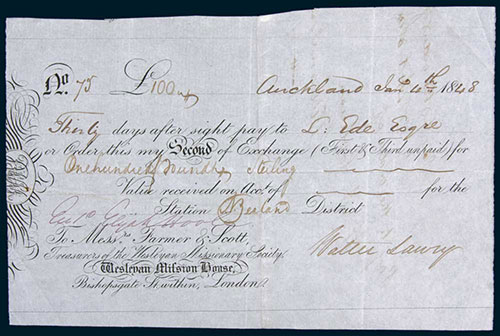 No. 75 £100 Auckland Jany 4th 1848
Thirty days after sight pay to L. Ede Esqre
or Order this my Second of Exchange (First & Third unpaid) for
One hundred Pounds sterling
Value received on Acct. of for the
Station District
To Messrs. Farmer & Scott, Walter Lawry
Treasurers of the Wesleyan Missionary Society,
Wesleyan Mission House,
Bishopsgate St. within, London.